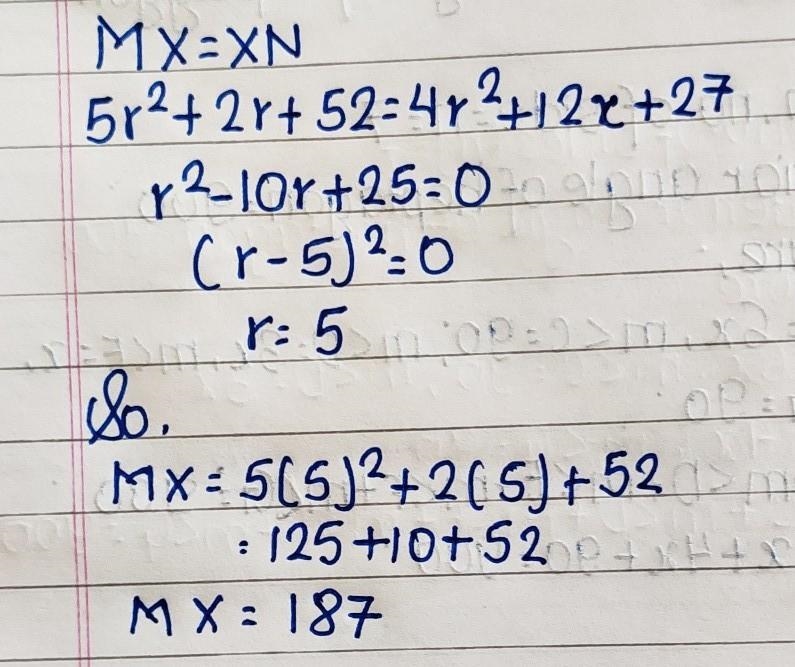 MX=XN
5r²+2r+52=4r²+12x+27
r²-10r+25=0
(r-5)²=0
r=5
So,
MX=5(5)²+2(5)+52
=125+10+52
MX=187